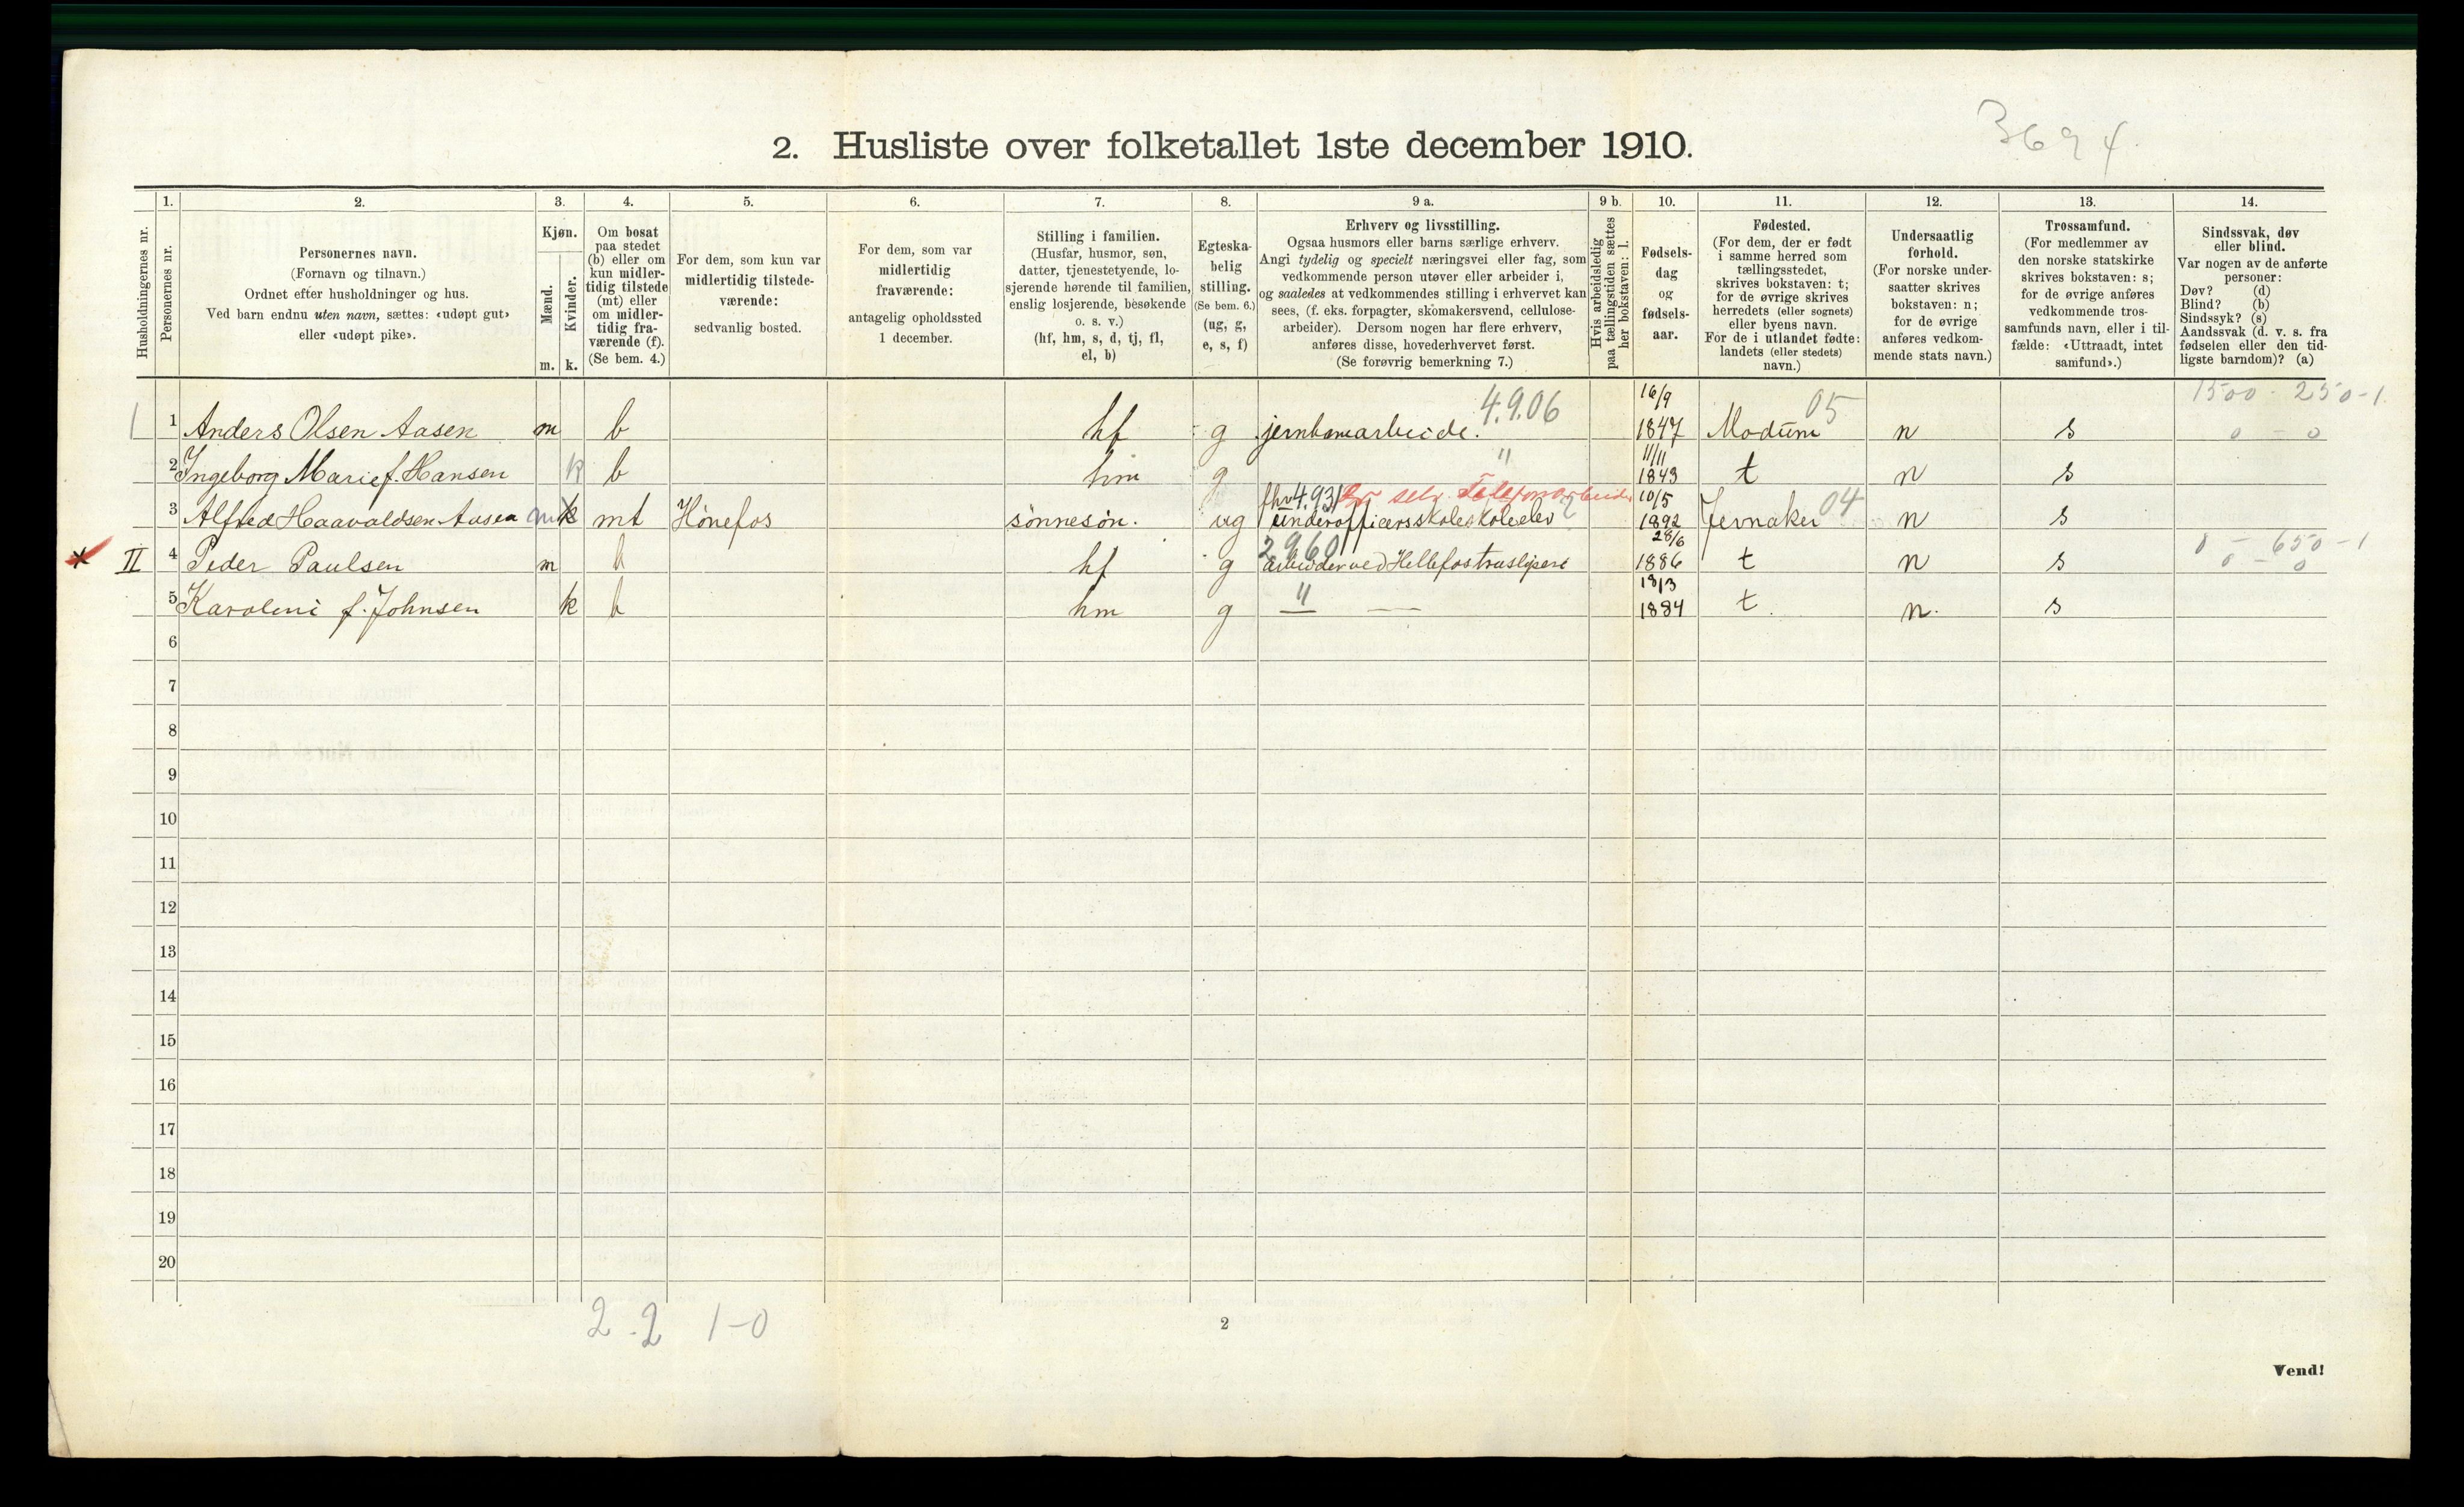 3694
2. Husliste over folketallet 1ste december 1910.
Husholdningernes nr.
1.
Personernes nr.
2.
Personernes navn.
(Fornavn og tilnavn.)
Ordnet efter husholdninger og hus.
Ved barn endnu uten navn, sættes: «udøpt gut»
eller «udøpt pike».
3.
Kjøn.
Mænd.
Kvinder.
m. k.
4.
Om bosat
paa stedet
(b) eller om
kun midler-
tidig tilstede
(mt) eller
om midler-
tidig fra-
værende (f).
(Se bem. 4.)
5.
For dem, som kun var
midlertidig tilstede-
værende:
sedvanlig bosted.
6.
For dem, som var
midlertidig
fraværende:
antagelig opholdssted
1 december.
7.
Stilling i familien.
(Husfar, husmor, søn,
datter, tjenestetyende, lo-
sjerende hørende til familien,
enslig losjerende, besøkende
o. s. v.)
(hf, hm, s, d, tj, fl,
el, b)
8.
Egteska-
belig
stilling.
(Se bem. 6.)
(ug, g,
e, s, f)
9 a.
Erhverv og livsstilling.
Ogsaa husmors eller barns særlige erhverv.
Angi tydelig og specielt næringsvei eller fag, som
vedkommende person utøver eller arbeider i,
og saaledes at vedkommendes stilling i erhvervet kan
sees, (f. eks. forpagter, skomakersvend, cellulose-
arbeider). Dersom nogen har flere erhverv,
anføres disse, hovederhvervet først.
(Se forøvrig bemerkning 7.)
9 b.
Hvis arbeidsledig
paa tællingstiden sættes
her bokstaven: l.
10.
Fødsels-
dag
og
fødsels-
aar.
11.
Fødested.
(For dem, der er født
i samme herred som
tællingsstedet,
skrives bokstaven: t;
for de øvrige skrives
herredets (eller sognets)
eller byens navn.
For de i utlandet fødte:
landets (eller stedets)
navn.)
12.
Undersaatlig
forhold.
(For norske under-
saatter skrives
bokstaven: n;
for de øvrige
anføres vedkom-
mende stats navn.)
13.
Trossamfund.
(For medlemmer av
den norske statskirke
skrives bokstaven: s;
for de øvrige anføres
vedkommende tros-
samfunds navn, eller i til-
fælde: «Uttraadt, intet
samfund».)
14.
Sindssvak, døv
eller blind.
Var nogen av de anførte
personer:
Døv? (d)
Blind? (b)
Sindssyk? (s)
Aandssvak (d. v. s. fra
fødselen eller den tid-
ligste barndom)? (a)
4.9.06 16/9 05 1500 - 250-1
1 1 Anders Olsen Aasen m b hf g jernbanearbeide. 1847 Modum n s 0 - 0
" 11/11
2 Ingeborg Marie f. Hansen k b hm g 1843 t n s
4.931 Er selv Telefonarbeider 10/5 04
3 Alfred Haavaldsen Aasen m k mt Hønefos sønnesøn. ug underofficersskole skoleelev 1892 Jevnaker n s
2960 28/6 0 - 650-1
II 4 Peder Paulsen m b hf g arbeider ved Hellefos træsliperi 1886 t n s 0 - 0
" 18/3
5 Karoline f. Johnsen k b hm g — — 1884 t. n. s
6
7
8
9
10
11
12
13
14
15
16
17
18
19
20
2 . 2 1-0
2
Vend!